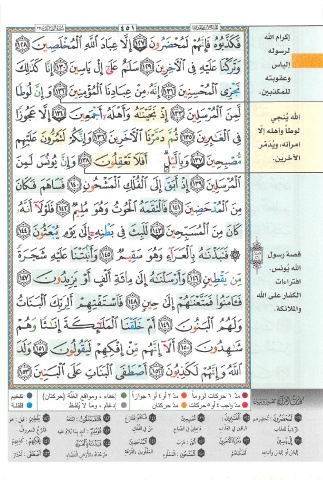 ٤٥١
فَكَذَّبُوهُ فَإِنَّهُمْ لَمُحْضَرُونَ ١٢٧ إِلَّا عِبَادَ ٱللَّهِ ٱلْمُخْلَصِينَ ١٢٨
وَتَرَكْنَا عَلَيْهِ فِى ٱلْءَاخِرِينَ ١٢٩ سَلَٰمٌ عَلَىٰٓ إِلْ يَاسِينَ ١٣٠ إِنَّا كَذَٰلِكَ
نَجْزِى ٱلْمُحْسِنِينَ ١٣١ إِنَّهُۥ مِنْ عِبَادِنَا ٱلْمُؤْمِنِينَ ١٣٢ وَإِنَّ لُوطًا
لَّمِنَ ٱلْمُرْسَلِينَ ١٣٣ إِذْ نَجَّيْنَٰهُ وَأَهْلَهُۥٓ أَجْمَعِينَ ١٣٤ إِلَّا عَجُوزًا
فِى ٱلْغَٰبِرِينَ ١٣٥ ثُمَّ دَمَّرْنَا ٱلْءَاخَرِينَ ١٣٦ وَإِنَّكُمْ لَتَمُرُّونَ عَلَيْهِم
مُّصْبِحِينَ ١٣٧ وَبِٱلَّيْلِ أَفَلَا تَعْقِلُونَ ١٣٨ وَإِنَّ يُونُسَ لَمِنَ
ٱلْمُرْسَلِينَ ١٣٩ إِذْ أَبَقَ إِلَى ٱلْفُلْكِ ٱلْمَشْحُونِ ١٤٠ فَسَاهَمَ فَكَانَ
مِنَ ٱلْمُدْحَضِينَ ١٤١ فَٱلْتَقَمَهُ ٱلْحُوتُ وَهُوَ مُلِيمٌ ١٤٢ فَلَوْلَآ أَنَّهُۥ
كَانَ مِنَ ٱلْمُسَبِّحِينَ ١٤٣ لَلَبِثَ فِى بَطْنِهِۦٓ إِلَىٰ يَوْمِ يُبْعَثُونَ ١٤٤
فَنَبَذْنَٰهُ بِٱلْعَرَآءِ وَهُوَ سَقِيمٌ ١٤٥ وَأَنۢبَتْنَا عَلَيْهِ شَجَرَةً
مِّن يَقْطِينٍ ١٤٦ وَأَرْسَلْنَٰهُ إِلَىٰ مِا۟ئَةِ أَلْفٍ أَوْ يَزِيدُونَ ١٤٧
فَـَٔامَنُوا۟ فَمَتَّعْنَٰهُمْ إِلَىٰ حِينٍ ١٤٨ فَٱسْتَفْتِهِمْ أَلِرَبِّكَ ٱلْبَنَاتُ
وَلَهُمُ ٱلْبَنُونَ ١٤٩ أَمْ خَلَقْنَا ٱلْمَلَٰٓئِكَةَ إِنَٰثًا وَهُمْ
شَٰهِدُونَ ١٥٠ أَلَآ إِنَّهُم مِّنْ إِفْكِهِمْ لَيَقُولُونَ ١٥١ وَلَدَ
ٱللَّهُ وَإِنَّهُمْ لَكَٰذِبُونَ ١٥٢ أَصْطَفَى ٱلْبَنَاتِ عَلَى ٱلْبَنِينَ ١٥٣
إكرام الله
لرسوله
إلياس
وعقوبته
للمكذبين.
الله يُنجي
لوطاً وأهله إلّا
امرأته، ويُدمّر
الآخرين.
قصة رسول
الله يُونس.
افتراءات
الكفار على الله
والملائكة.
مدّ ٦ حركات لزوماً
مدّ ٢ أو ٤ أو ٦ جوازاً
إخفاء، ومواقع الغنّة (حركتان)
تفخيم
مدّ واجب ٤ أو ٥ حركات
مدّ حركتان
إدغام، وما لا يُلفظ
قلقلة